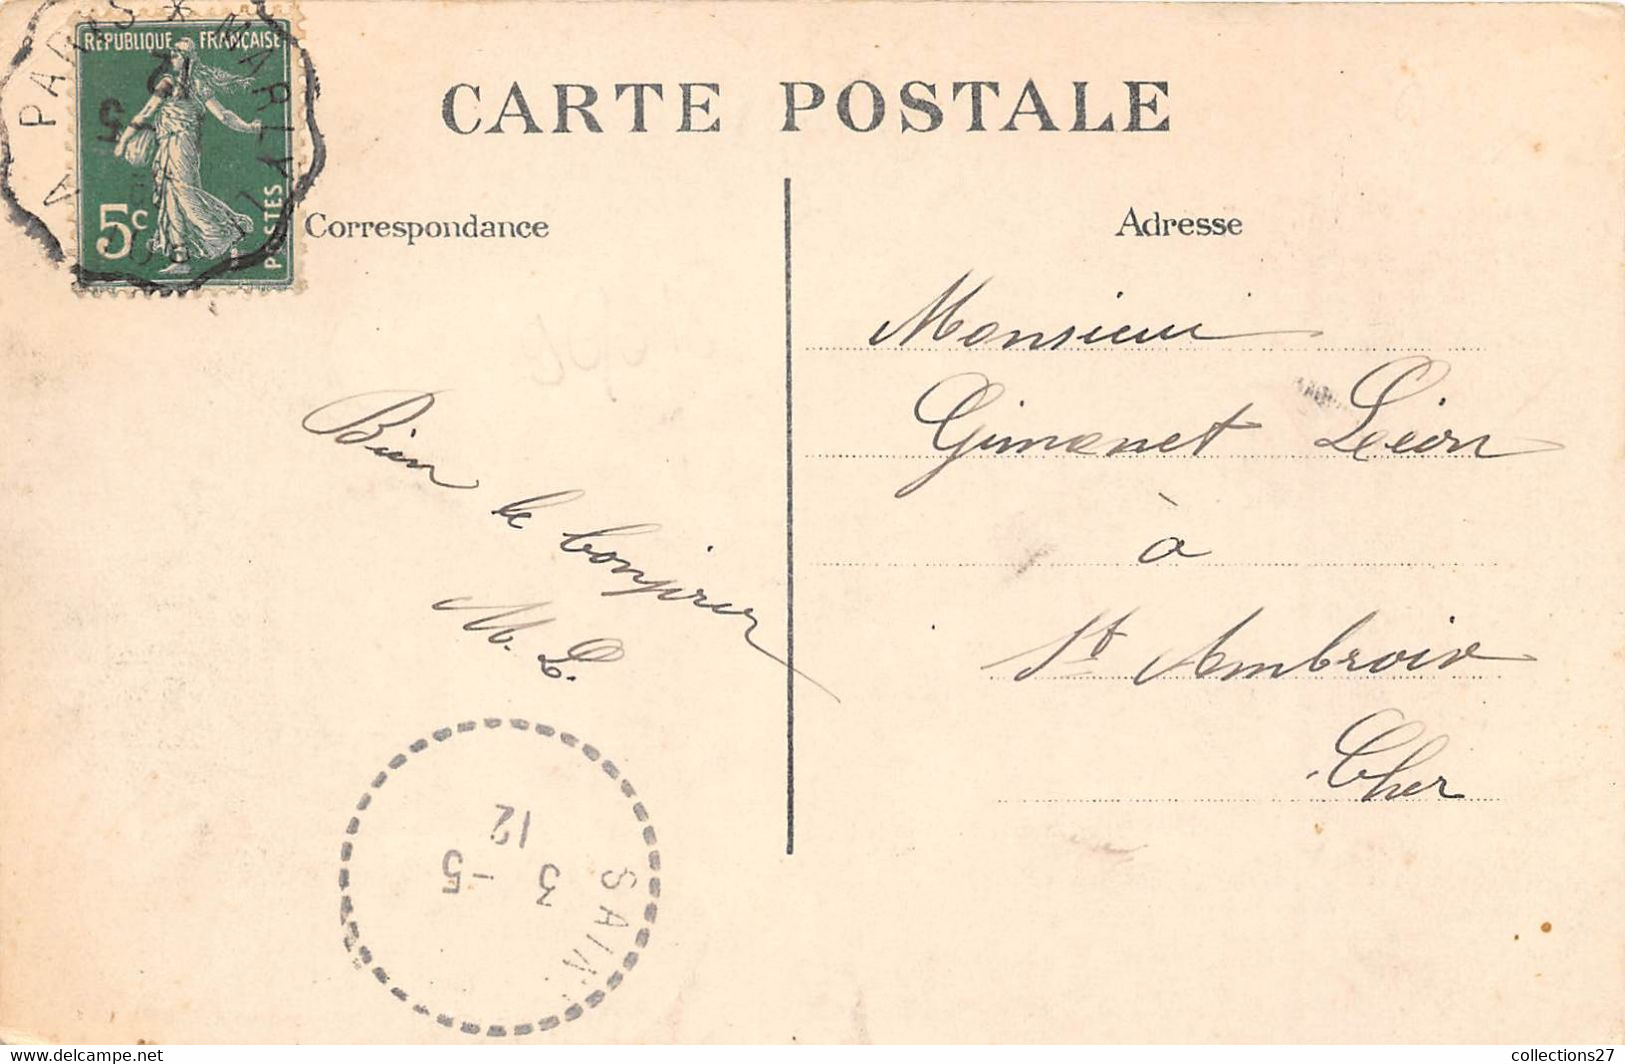 RÉPUBLIQUE FRANÇAISE
5c POSTES
PARIS * MARLY
12
5
CARTE POSTALE
Correspondance
Adresse
Monsieur
Gimonet Léon
à
St Ambroix
Cher
Bien le bonjour
M. L.
12
3 -5
SAIN
www.delcampe.net
collections27